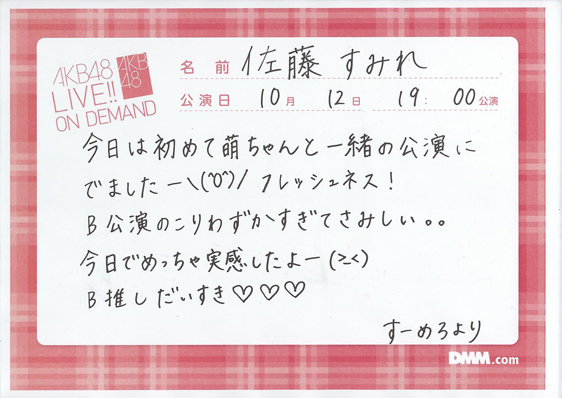 AKB48
LIVE!!
ON DEMAND
AKB
48
名前 佐藤 すみれ
公演日 10月 12日 19:00公演
今日は初めて萌ちゃんと一緒の公演に
でましたー\(^0^)/ フレッシュネス!
B公演のこりわずかすぎてさみしい。。
今日でめっちゃ実感したよー(>_<)
B推しだいすき♡♡♡
すーめろより
DMM.com